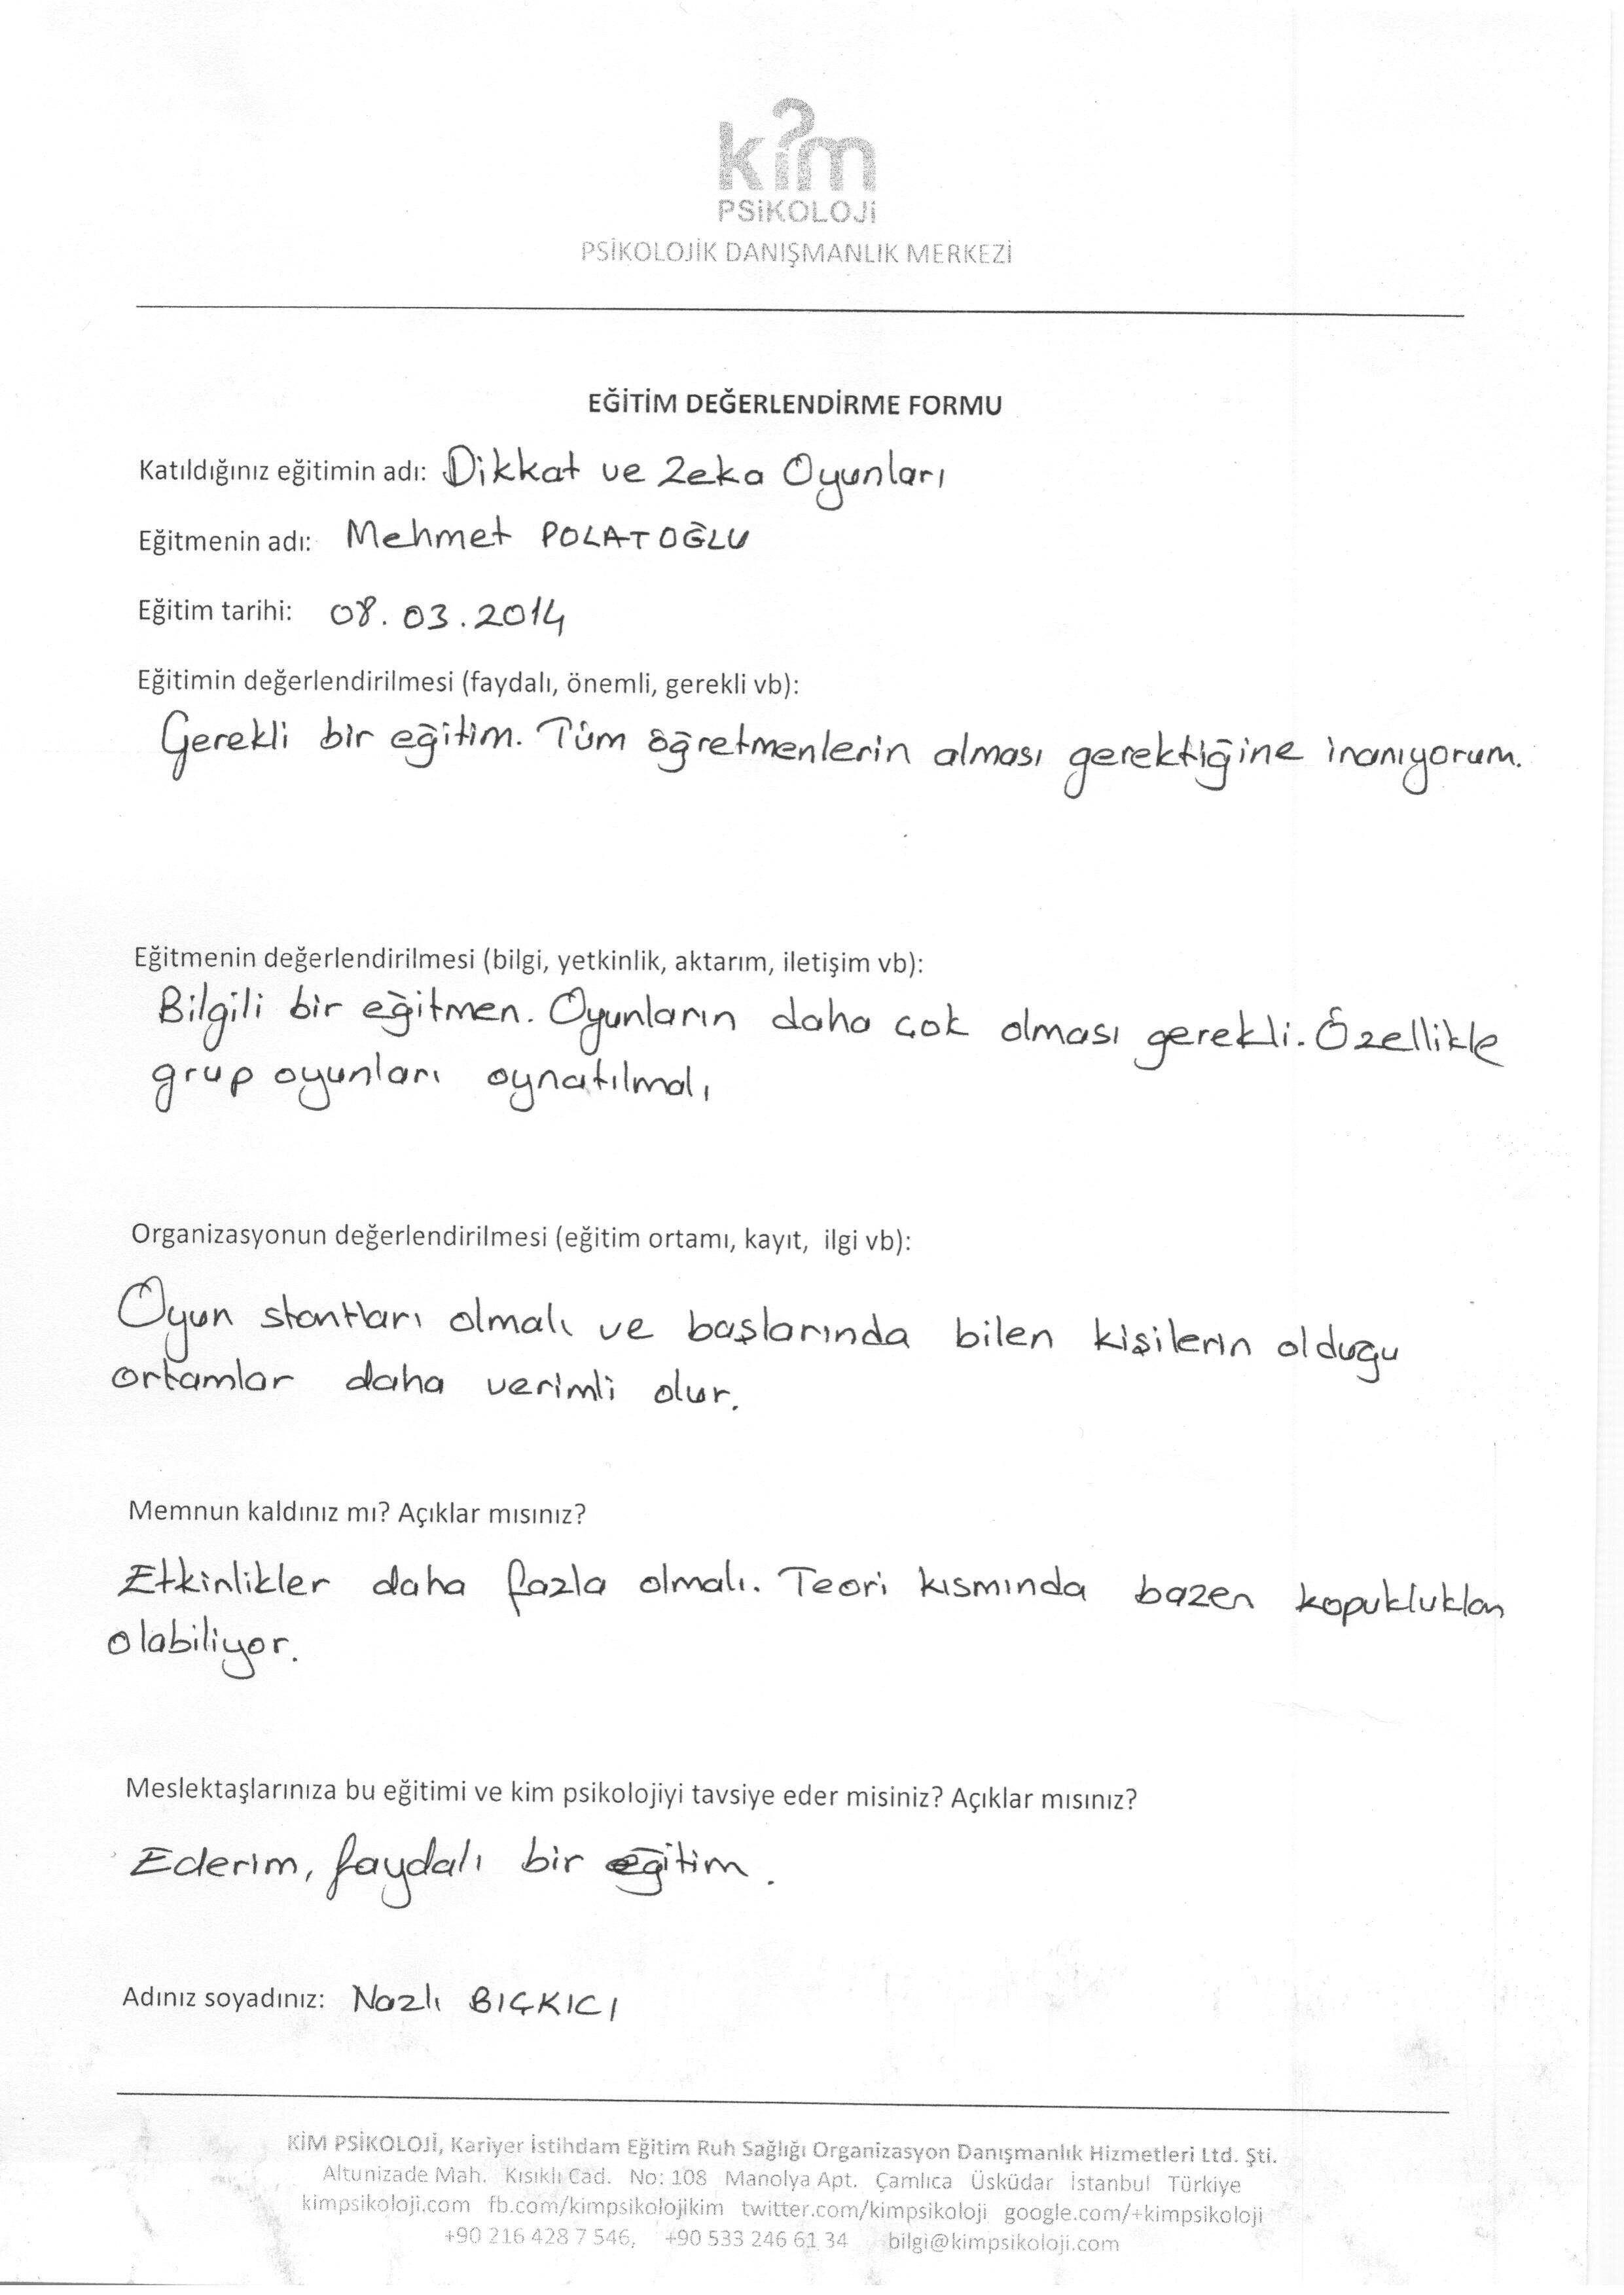 kim
PSiKOLOJi
PSİKOLOJİK DANIŞMANLIK MERKEZİ
EĞİTİM DEĞERLENDİRME FORMU
Katıldığınız eğitimin adı: Dikkat ve Zeka Oyunları
Eğitmenin adı: Mehmet POLATOĞLU
Eğitim tarihi: 08.03.2014
Eğitimin değerlendirilmesi (faydalı, önemli, gerekli vb):
Gerekli bir eğitim. Tüm öğretmenlerin alması gerektiğine inanıyorum.
Eğitmenin değerlendirilmesi (bilgi, yetkinlik, aktarım, iletişim vb):
Bilgili bir eğitmen. Oyunların daha çok olması gerekli. Özellikle
grup oyunları oynatılmalı
Organizasyonun değerlendirilmesi (eğitim ortamı, kayıt, ilgi vb):
Oyun stantları olmalı ve başlarında bilen kişilerin olduğu
ortamlar daha verimli olur.
Memnun kaldınız mı? Açıklar mısınız?
Etkinlikler daha fazla olmalı. Teori kısmında bazen kopukluklar
olabiliyor.
Meslektaşlarınıza bu eğitimi ve kim psikolojiyi tavsiye eder misiniz? Açıklar mısınız?
Ederim, faydalı bir eğitim.
Adınız soyadınız: Nazlı BIÇKICI
KİM PSİKOLOJİ, Kariyer İstihdam Eğitim Ruh Sağlığı Organizasyon Danışmanlık Hizmetleri Ltd. Şti.
Altunizade Mah. Kısıklı Cad. No: 108 Manolya Apt. Çamlıca Üsküdar İstanbul Türkiye
kimpsikoloji.com fb.com/kimpsikolojikim twitter.com/kimpsikoloji google.com/+kimpsikoloji
+90 216 428 7 546, +90 533 246 61 34 bilgi@kimpsikoloji.com